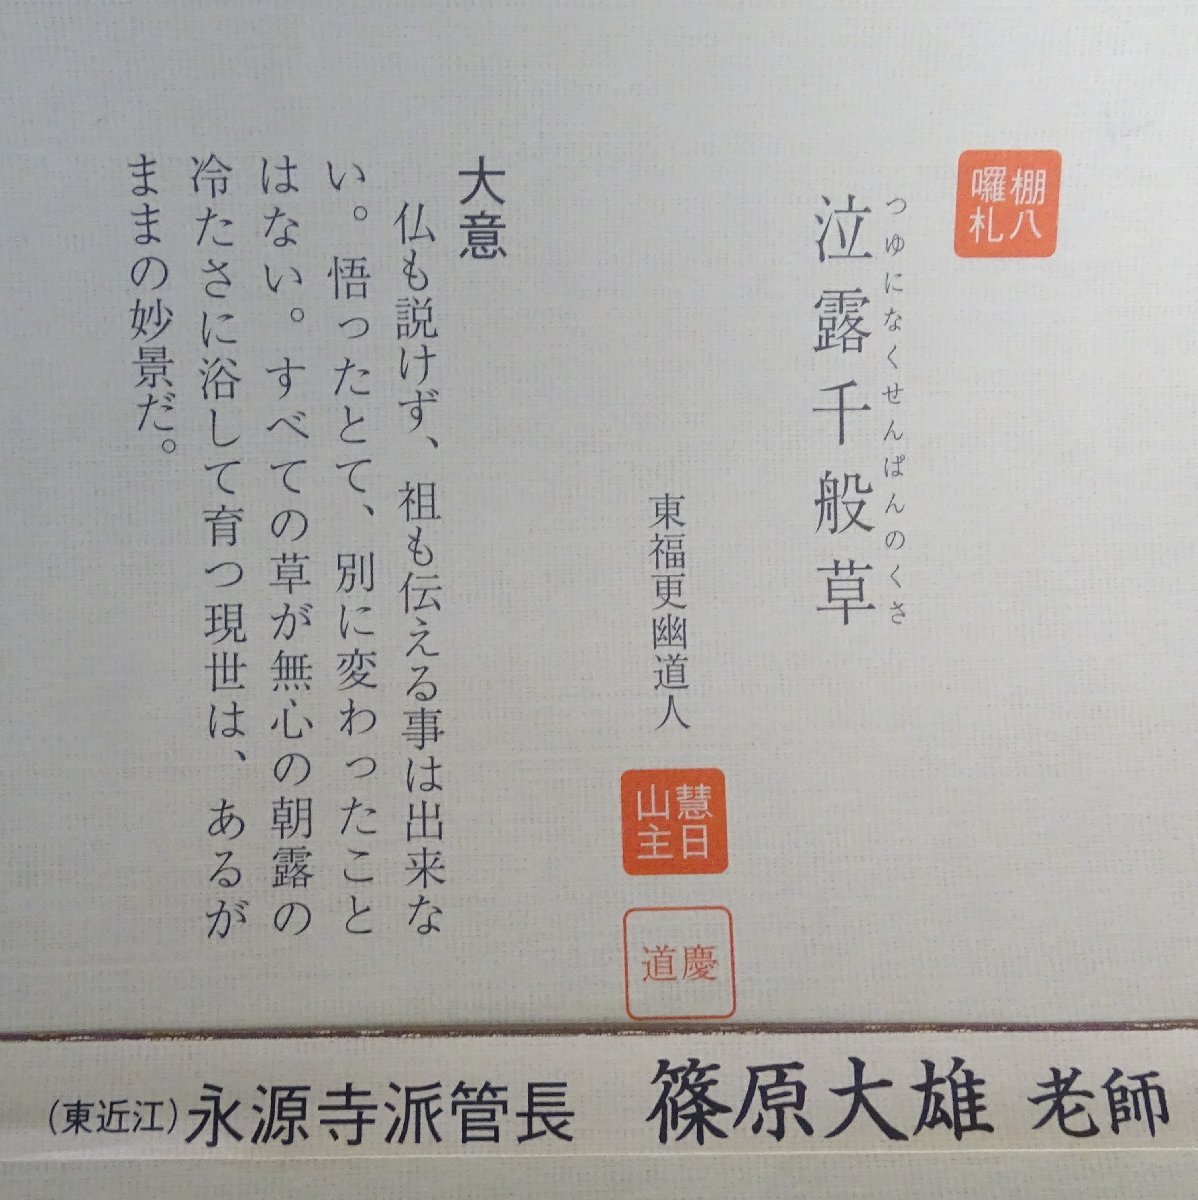 棚八
囉札
泣露千般草
つゆになくせんぱんのくさ
東福更幽道人
慧日
山主
慶道
大意
仏も説けず、祖も伝える事は出来な
い。悟ったとて、別に変わったこと
はない。すべての草が無心の朝露の
冷たさに浴して育つ現世は、あるが
ままの妙景だ。
(東近江)永源寺派管長 篠原大雄 老師